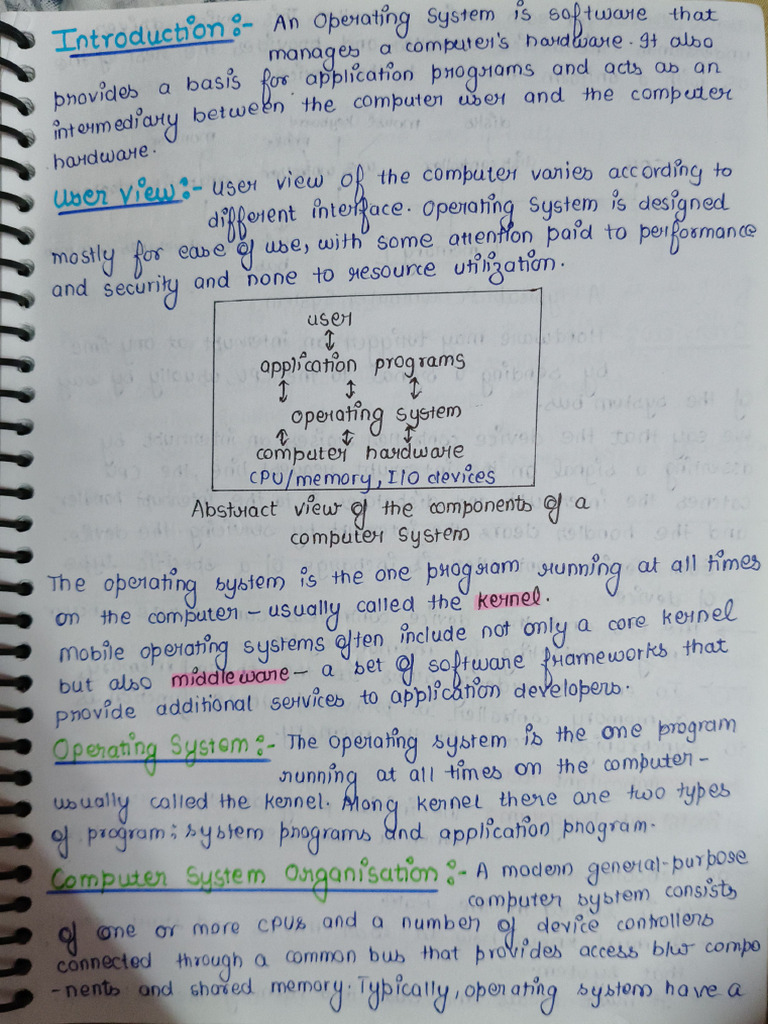 Introduction:- An Operating System is software that
manages a computer's hardware. It also
provides a basis for application programs and acts as an
intermediary between the computer user and the computer
hardware.
User View:- User view of the computer varies according to
different interface. Operating System is designed
mostly for ease of use, with some attention paid to performance
and security and none to resource utilization.
user
application programs
operating system
computer hardware
CPU/memory, I/O devices
Abstract view of the components of a
computer System
The operating system is the one program running at all times
on the computer - usually called the kernel.
mobile operating systems often include not only a core kernel
but also middleware - a set of software frameworks that
provide additional services to application developers.
Operating System:- The operating system is the one program
running at all times on the computer -
usually called the kernel. Along kernel there are two types
of program; system programs and application program.
Computer System Organisation:- A modern general-purpose
computer system consists
of one or more CPUs and a number of device controllers
connected through a common bus that provides access b/w compo
-nents and shared memory. Typically, operating system have a